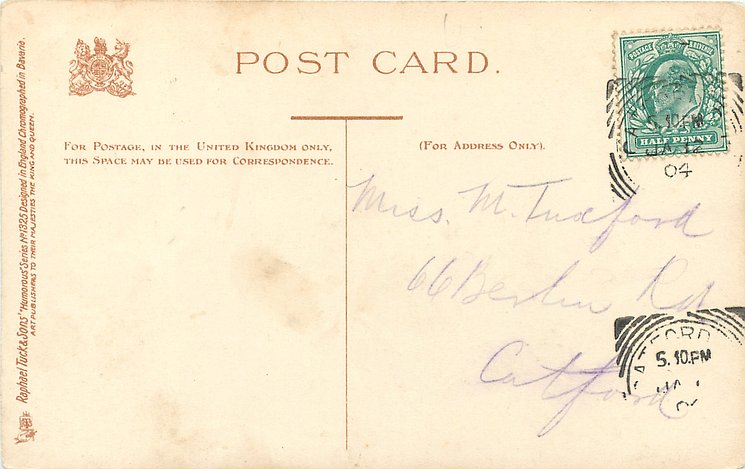 POST CARD.
FOR POSTAGE, IN THE UNITED KINGDOM ONLY,
THIS SPACE MAY BE USED FOR CORRESPONDENCE.
(FOR ADDRESS ONLY).
Miss. M. Tuxford
66 Berlin Rd
Catford
POSTAGE REVENUE
HALF PENNY
5.10PM
12
04
CATFORD
5.10.PM
Raphael Tuck & Sons' "Humorous" Series No 1325 Designed in England Chromographed in Bavaria.
ART PUBLISHERS TO THEIR MAJESTIES THE KING AND QUEEN.